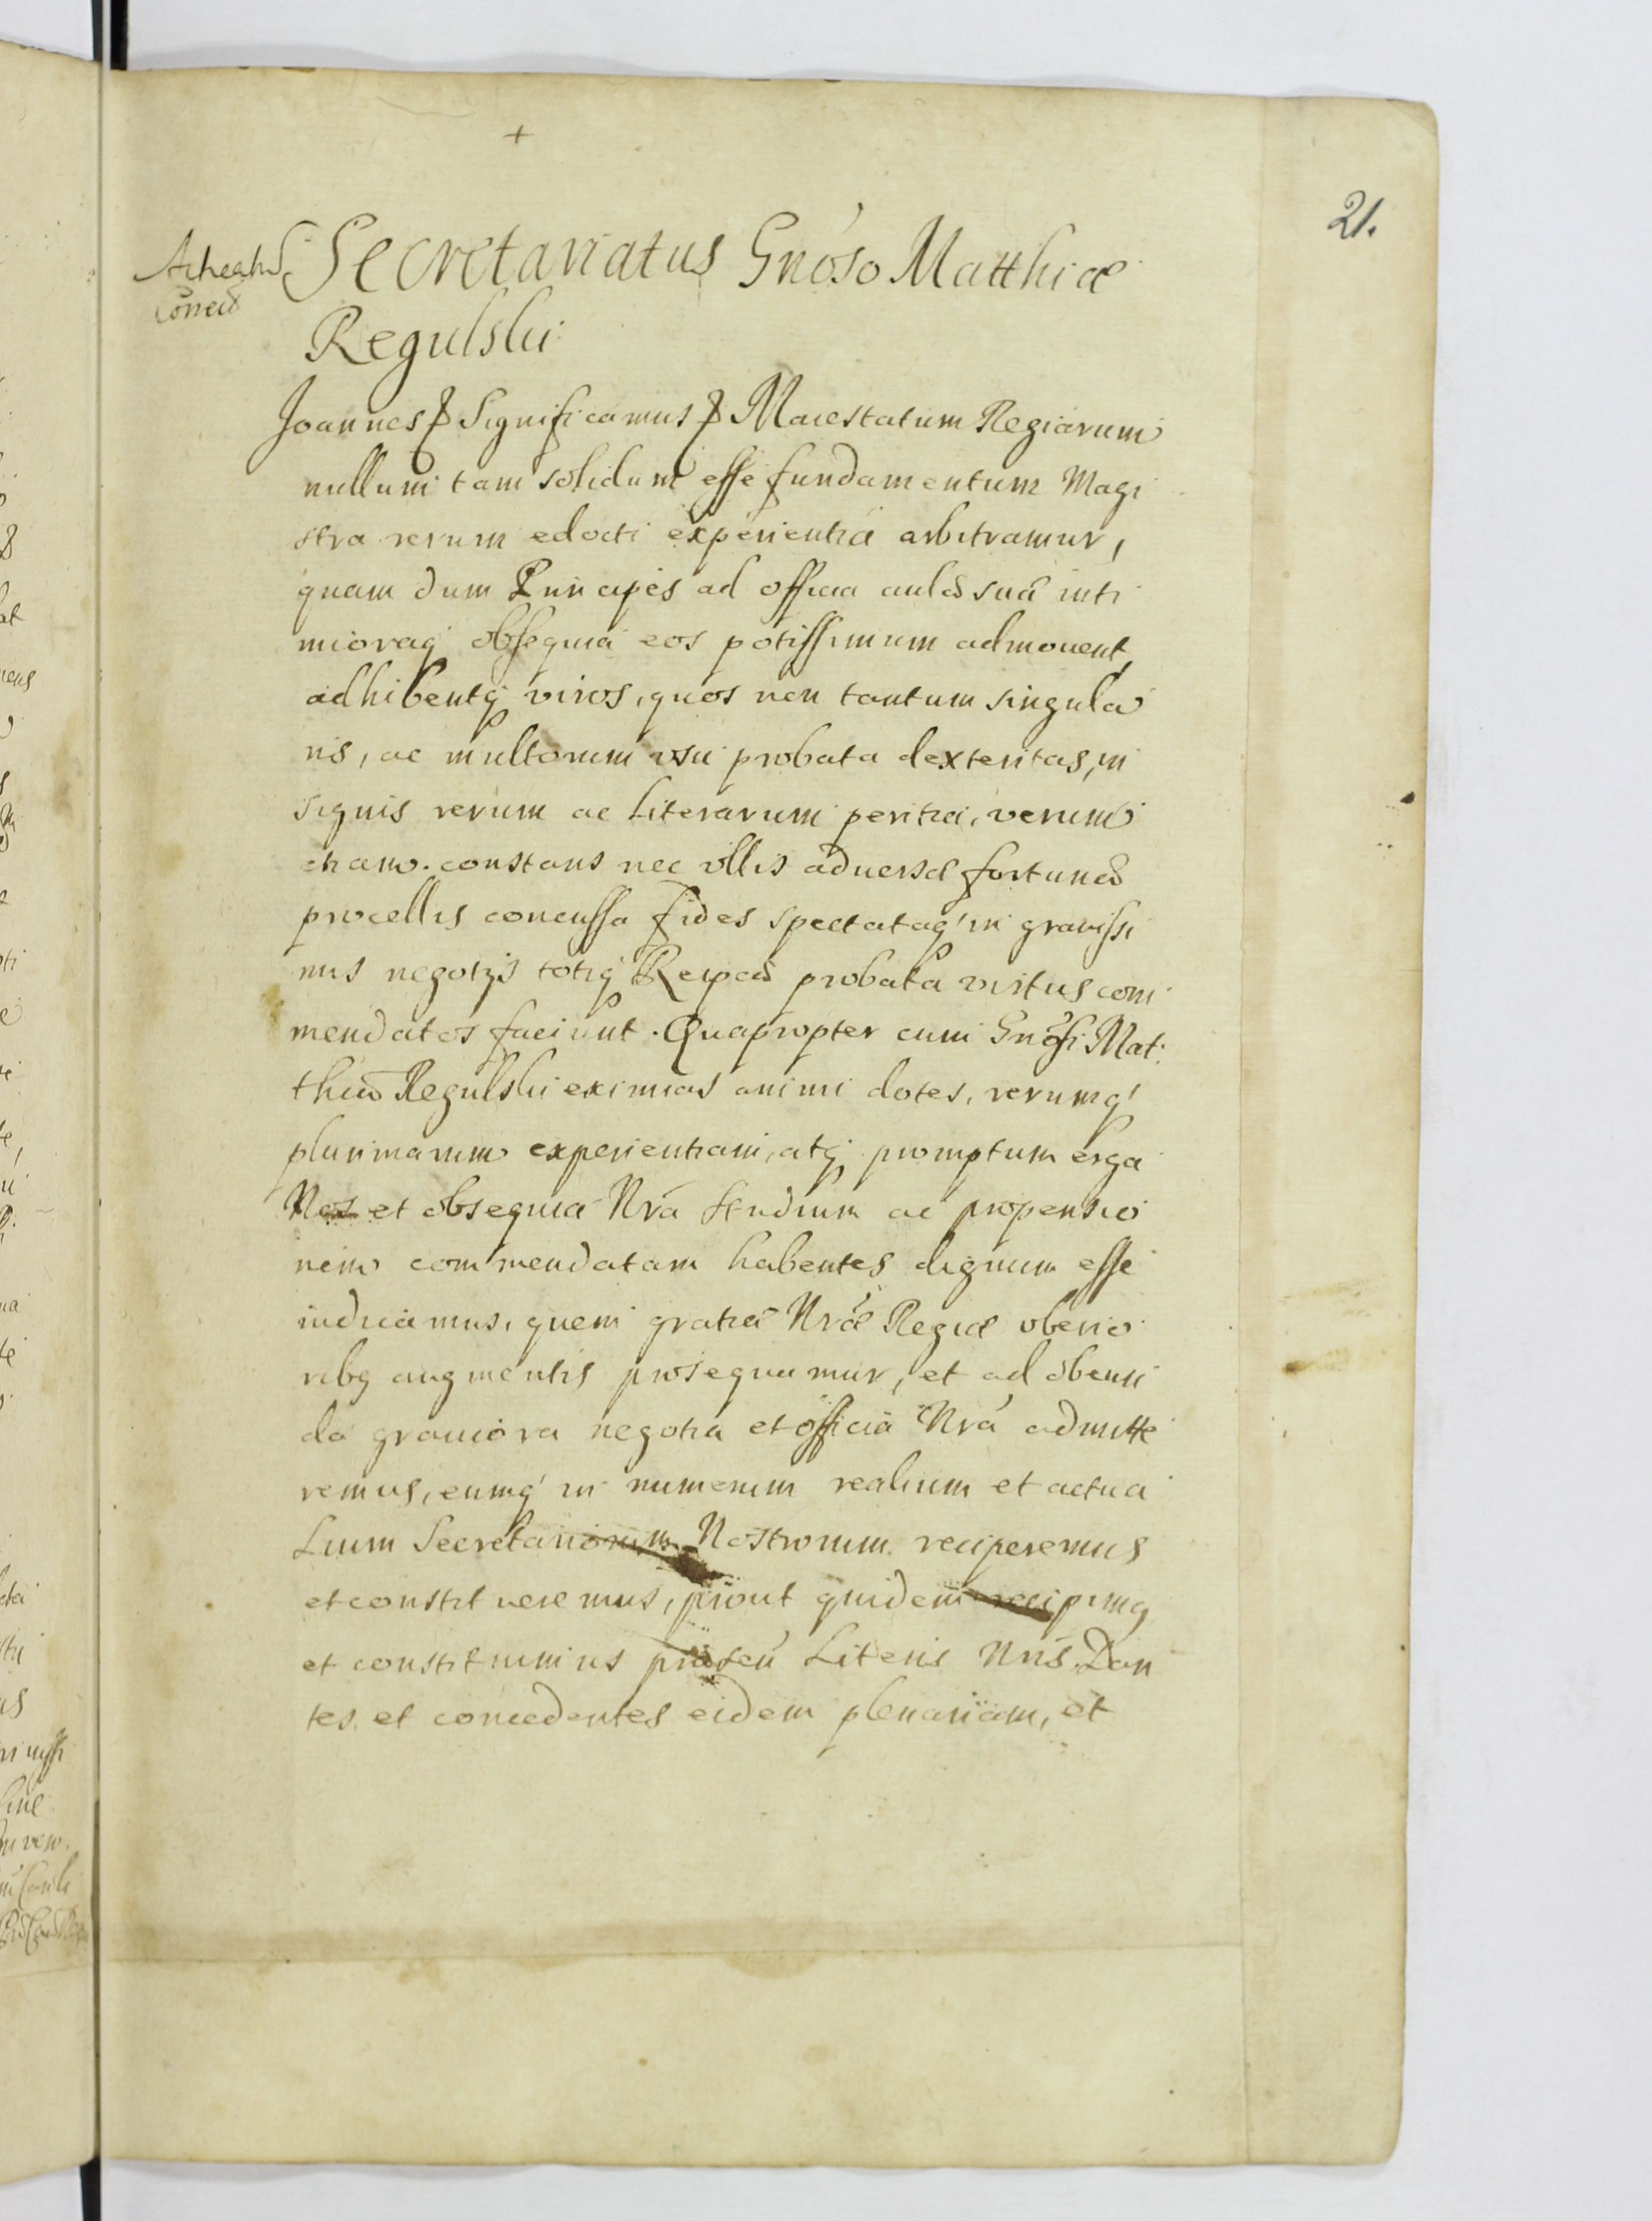 21.
Secretariatus Gnoso Matthiæ
Regulski
Joannes Significamus Maiestatum Regiarum
nullum tam solidum esse fundamentum Magi
stra rerum edocti experientia arbitramur,
quam dum Principes ad officia aulæ suæ inti
mioraq obsequia eos potissimum admouent
adhibentq viros, quos non tantum singula
ris, ac multorum vsu probata dexteritas, in
signis rerum ac literarum peritia, verum
etiam constans nec vllis aduersæ fortunæ
procellis concussa fides spectataq in grauissi
mis negotijs totiq Reipcæ probata virtus com
mendatos faciunt. Quapropter cum Gnosi Mat
thiæ Regulski eximias animi dotes, rerumq
plurimarum experientiam, atq promptum erga
Nos et obsequia Nra studium ac propensio
nem commendatam habentes dignum esse
iudicamus, quem gratiæ Nræ Regiæ oberio
ribq augmentis prosequamur, et ad obeun
da grauiora negotia et officia Nra admitte
remus, eumq in numerum realium et actua
lium Secretariorum Nostrorum reciperemus
et constitueremus, prout quidem recipimq
et constituimus præsen Literis Nris. Dan
tes et concedentes eidem plenariam, et